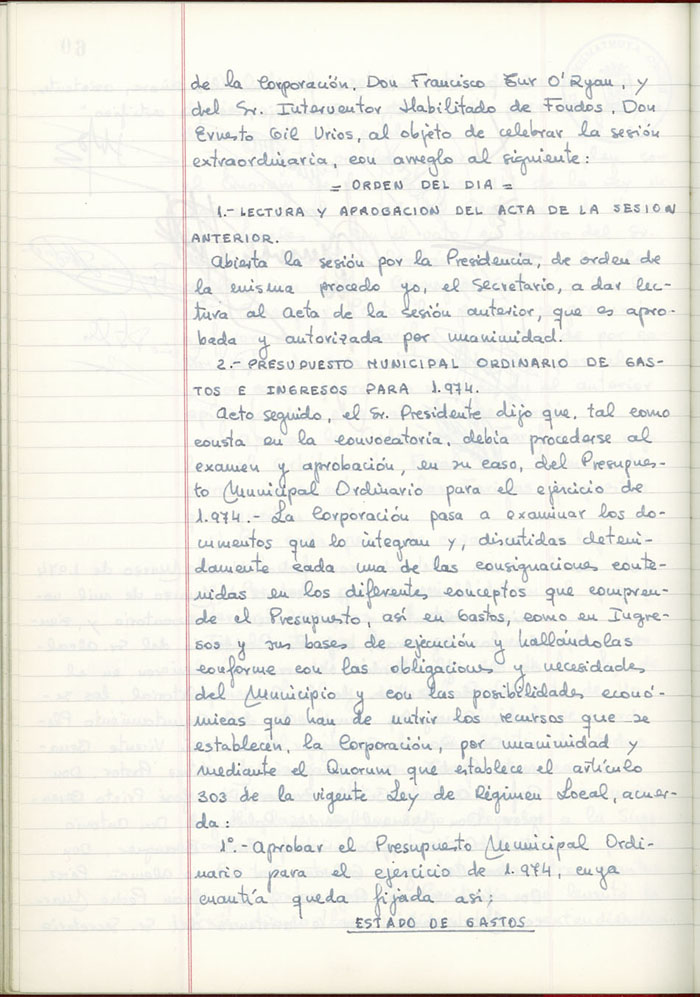 de la Corporación, Don Francisco Zur O'Ryan, y
del Sr. Interventor Habilitado de Fondos, Don
Ernesto Gil Urios, al objeto de celebrar la sesión
extraordinaria, con arreglo al siguiente:
= ORDEN DEL DIA =
1.- LECTURA Y APROBACION DEL ACTA DE LA SESION
ANTERIOR.
Abierta la sesión por la Presidencia, de orden de
la misma procedo yo, el Secretario, a dar lec-
tura al Acta de la sesión anterior, que es apro-
bada y autorizada por unanimidad.
2.- PRESUPUESTO MUNICIPAL ORDINARIO DE GAS-
TOS E INGRESOS PARA 1.974.
Acto seguido, el Sr. Presidente dijo que, tal como
consta en la convocatoria, debía procederse al
examen y aprobación, en su caso, del Presupues-
to Municipal Ordinario para el ejercicio de
1.974.- La Corporación pasa a examinar los do-
cumentos que lo integran y, discutidas deteni-
damente cada una de las consignaciones conte-
nidas en los diferentes conceptos que compren-
de el Presupuesto, así en Gastos, como en Ingre-
sos y sus bases de ejecución y hallándolas
conforme con las obligaciones y necesidades
del Municipio y con las posibilidades econó-
micas que han de nutrir los recursos que se
establecen, la Corporación, por unanimidad y
mediante el Quorum que establece el artículo
303 de la vigente Ley de Régimen Local, acuer-
da:
1º.- Aprobar el Presupuesto Municipal Ordi-
nario para el ejercicio de 1.974, cuya
cuantía queda fijada así;
ESTADO DE GASTOS